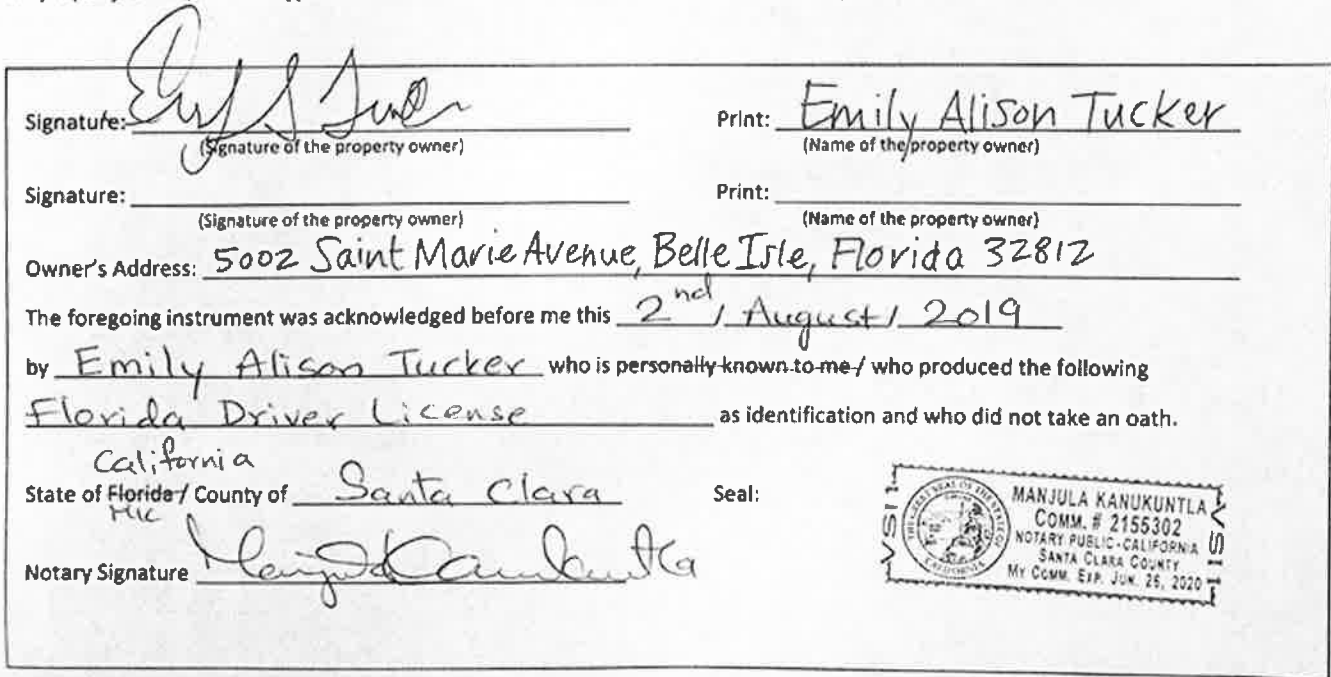 Signature: Print: Emily Alison Tucker
(Signature of the property owner) (Name of the property owner)
Signature: Print:
(Signature of the property owner) (Name of the property owner)
Owner's Address: 5002 Saint Marie Avenue, Belle Isle, Florida 32812
The foregoing instrument was acknowledged before me this 2nd / August / 2019
by Emily Alison Tucker who is personally known to me / who produced the following
Florida Driver License as identification and who did not take an oath.
California
State of Florida / County of Santa Clara Seal:
MK
Notary Signature
MANJULA KANUKUNTLA
COMM. # 2155302
NOTARY PUBLIC-CALIFORNIA
SANTA CLARA COUNTY
MY COMM. EXP. JUN. 26, 2020